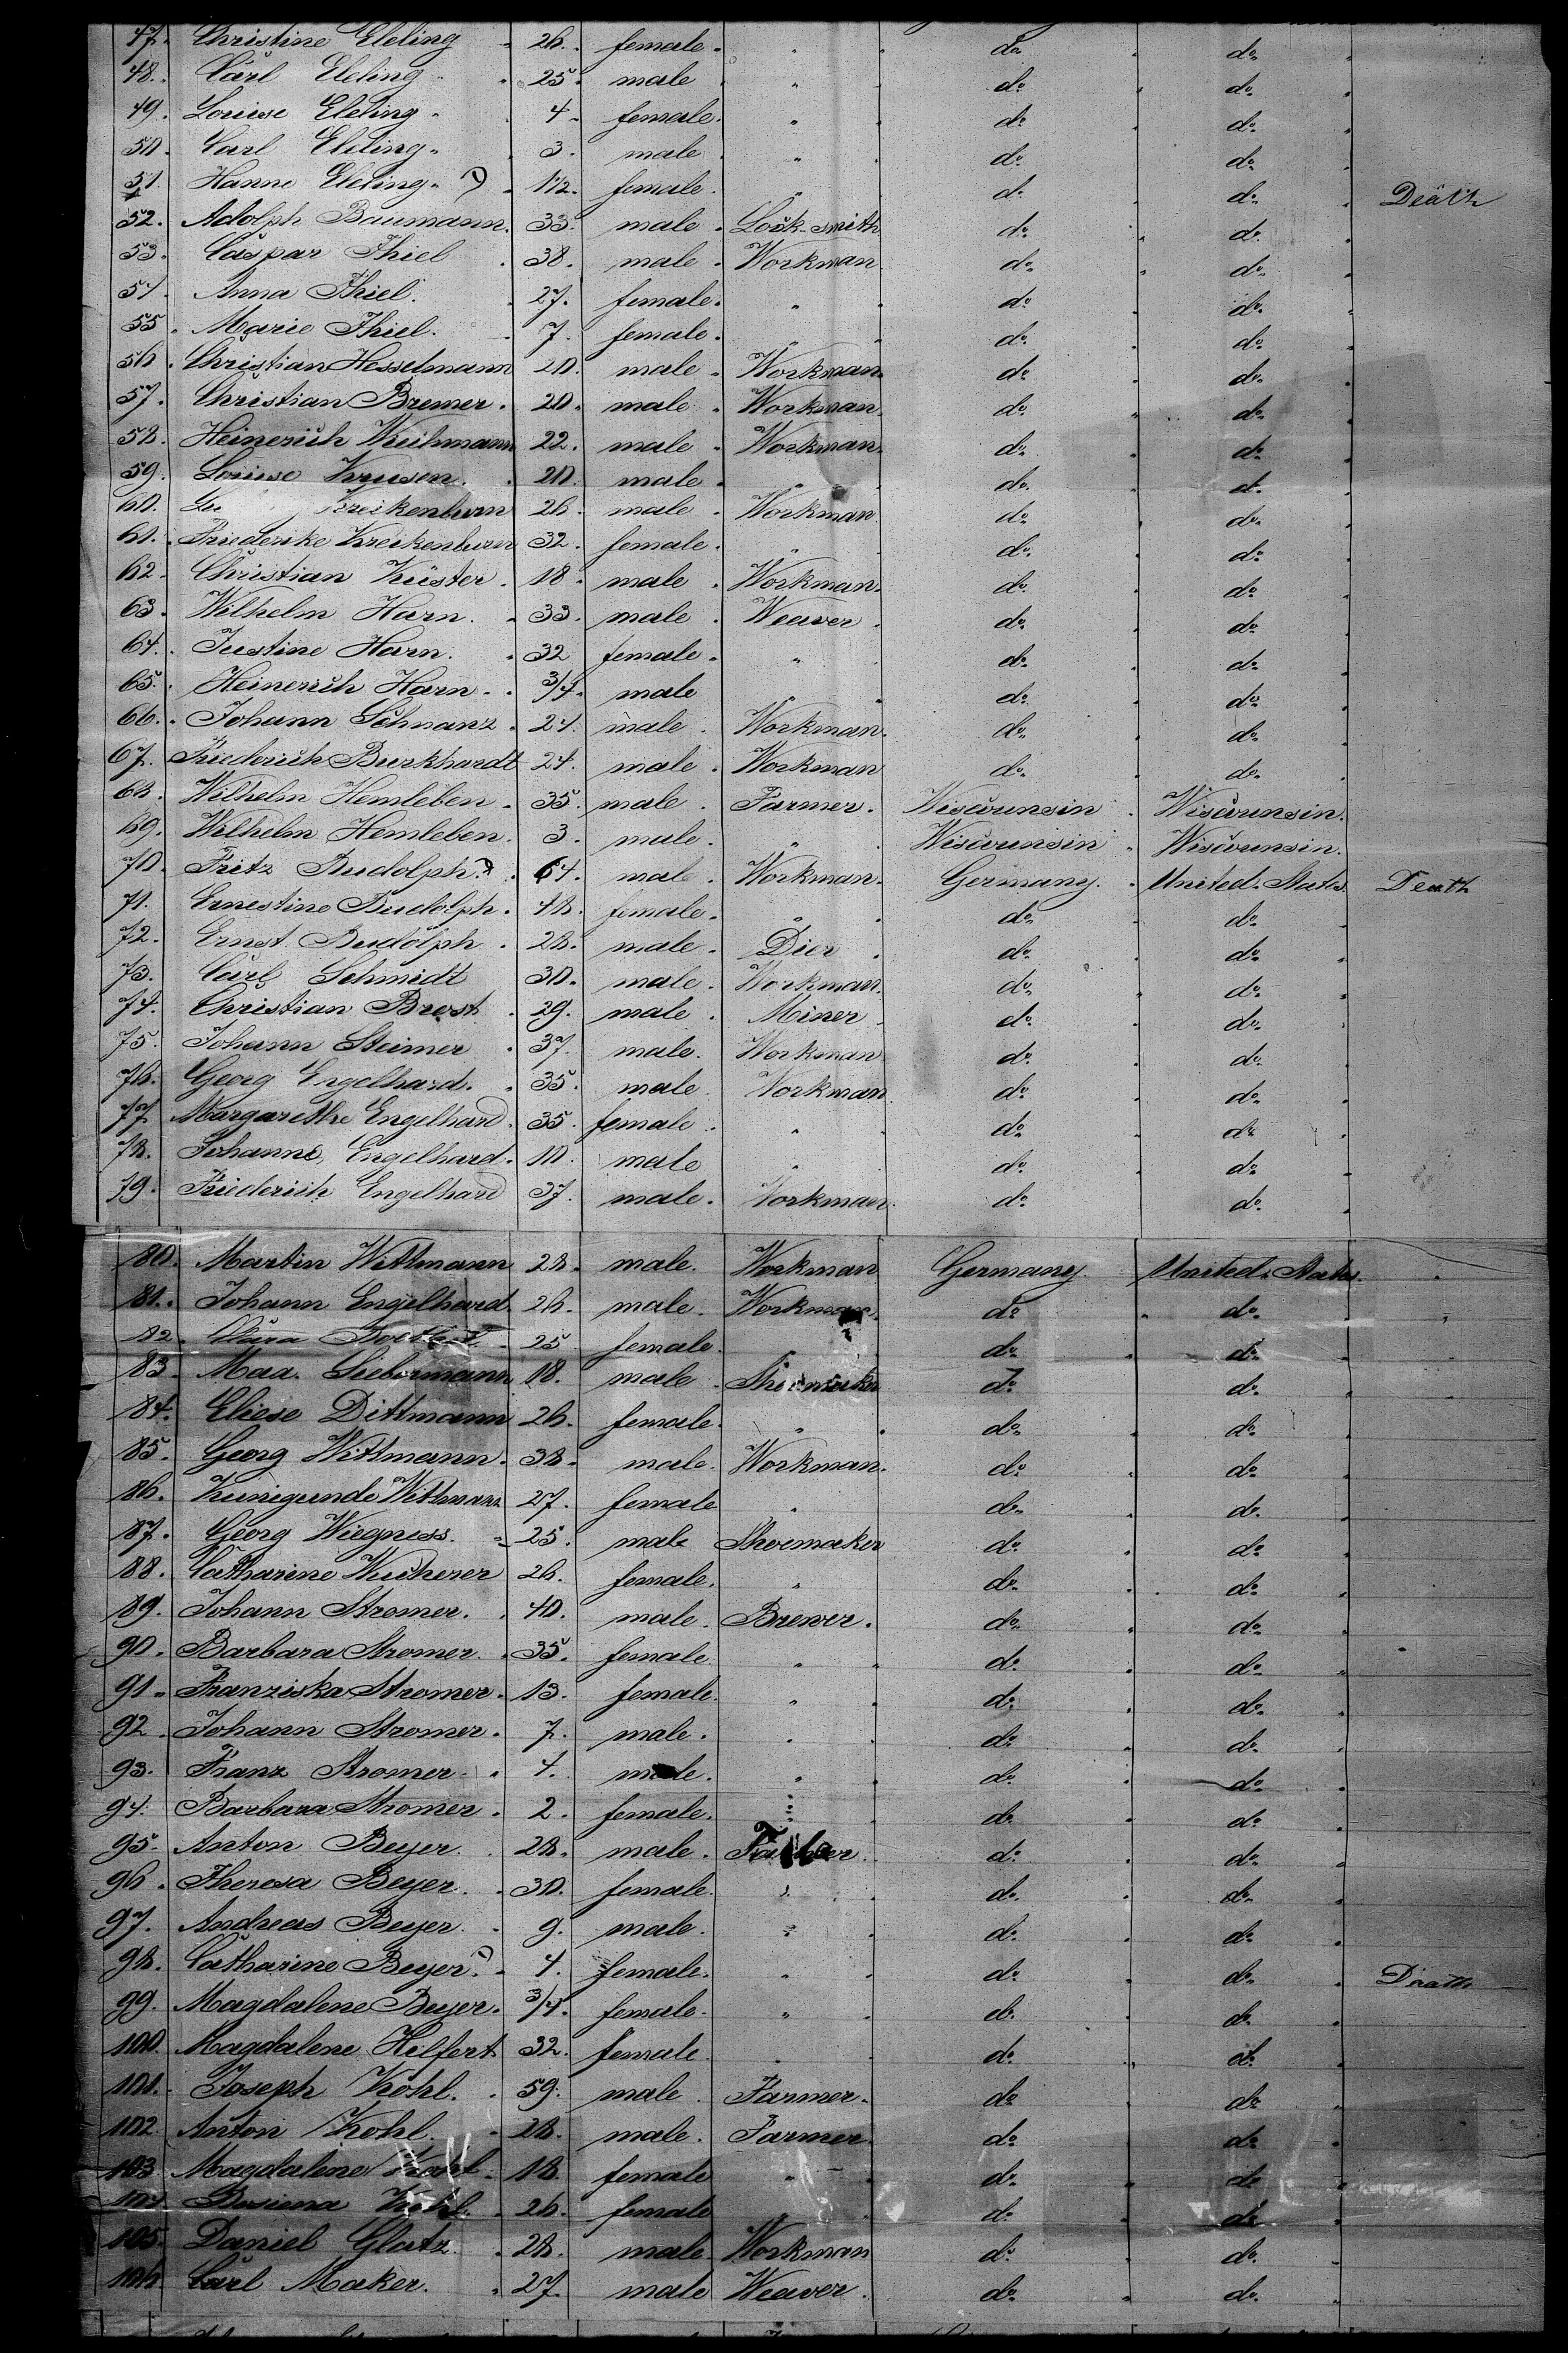 47. Christine Eleling 26. female. " do. do.
48. Carl Eleling 25. male " do. do.
49. Louise Eleling 4. female. " do. do.
50. Carl Eleling 3. male " do. do.
51. Hanne Eleling 1/2. female. " do. do. Death
52. Adolph Baumann. 33. male. Lock-smith do. do.
53. Caspar Thiel 38. male. Workman do. do.
54. Anna Thiel. 27. female. " do. do.
55. Marie Thiel. 7. female. " do. do.
56. Christian Hesselmann 20. male. Workman. do. do.
57. Christian Bremer. 20. male. Workman. do. do.
58. Heinerich 22. male. Workman. do. do.
59. Louise Krusen. 20. male. " do. do.
60. Kreikenburn 26. male. Workman. do. do.
61. Friederike Kreikenburn 32. female. " do. do.
62. Christian Küster. 18. male. Workman. do. do.
63. Wilhelm Harn. 33. male. Weaver. do. do.
64. Justine Harn. 32 female. " do. do.
65. Heinerich Harn. 3/4. male " do. do.
66. Johann Schnanz. 24. male. Workman. do. do.
67. Friederich Burkhardt 24. male. Workman do. do.
68. Wilhelm Hemleben. 35. male. Farmer. Wisconnsin. Wisconnsin.
69. Wilhelm Hemleben. 3. male. " Wisconnsin. Wisconnsin.
70. Fritz Rudolph. 64. male. Workman. Germany. United-States. Death
71. Ernestine Rudolph. 48. female. " do. do.
72. Ernst Rudolph. 28. male. Dier. do. do.
73. Carl Schmidt 30. male. Workman. do. do.
74. Christian Brost. 29. male. Miner. do. do.
75. Johann Steimer 37. male. Workman do. do.
76. Georg Engelhard. 35. male. Workman do. do.
77. Margarethe Engelhard. 35. female. " do. do.
78. Johanne Engelhard. 10. male " do. do.
79. Friederich Engelhard 37. male. Workman. do. do.
80. Martin Wittmann 28. male. Workman Germany. United-States.
81. Johann Engelhard. 26. male. Workman. do. do.
82. Clara 25 female. do. do.
83. Liebermann 18. male. Shoemaker do. do.
84. Eliese Dittmann 26. female. " do. do.
85. Georg Wittmann. 38. male. Workman. do. do.
86. Kunigunde Wittmann 27. female " do. do.
87. Georg Wiegness. 25. male Shoemaker do. do.
88. Catharine Wucherer 26. female. " do. do.
89. Johann Stromer. 40. male. Brewer. do. do.
90. Barbara Stromer. 35. female. " do. do.
91. Franziska Stromer. 13. female. " do. do.
92. Johann Stromer. 7. male. " do. do.
93. Franz Stromer. 4. male. " do. do.
94. Barbara Stromer. 2. female. " do. do.
95. Anton Beyer. 28. male. do. do.
96. Theresa Beyer. 30. female. " do. do.
97. Andreas Beyer. 9. male. " do. do.
98. Catharine Beyer. 4. female. " do. do. Death
99. Magdalene Beyer. 3/4. female. " do. do.
100. Magdalene Helfert 32. female. " do. do.
101. Joseph Kohl. 59. male. Farmer. do. do.
102. Anton Kohl. 28. male. Farmer. do. do.
103. Magdalene Kohl. 18. female " do. do.
104. Kohl. 26. female " do. do.
105. Daniel Glatz. 28. male. Workman do. do.
106. Carl Maker. 27. male Weaver. do. do.